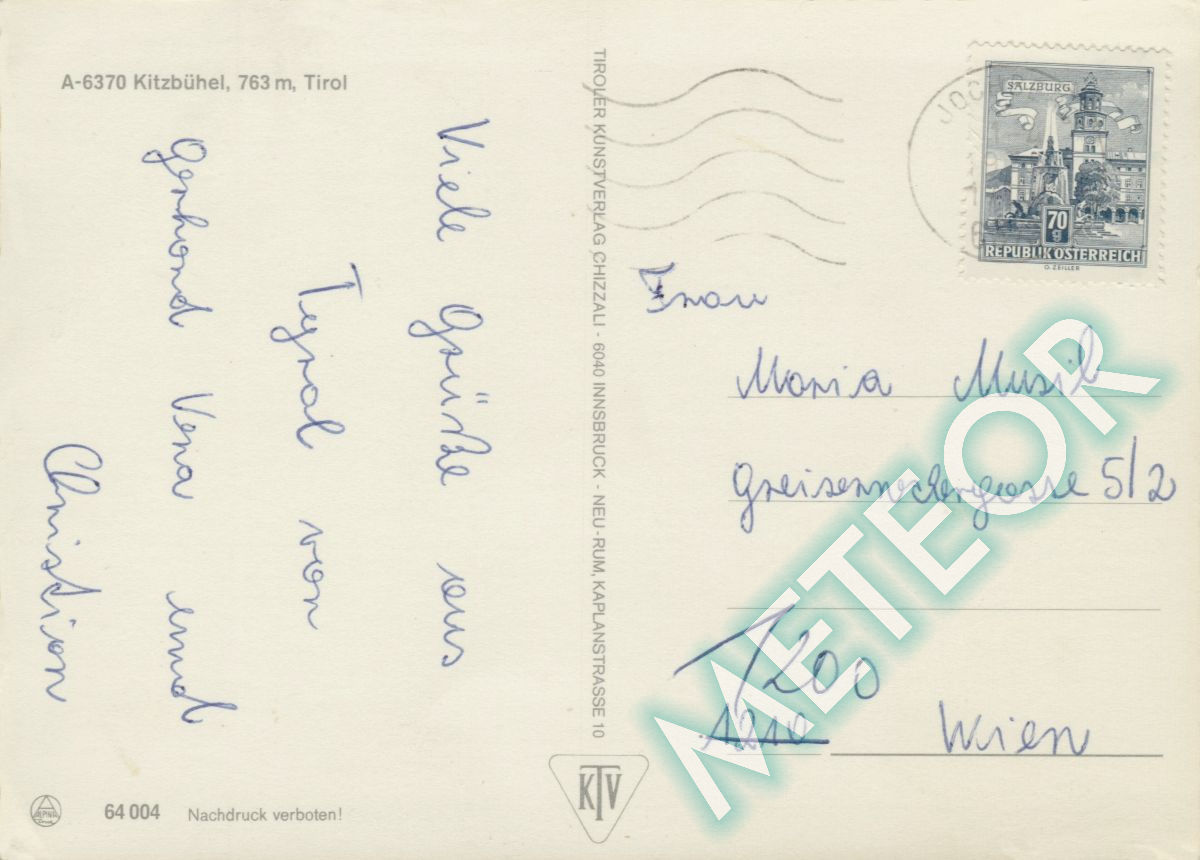 A-6370 Kitzbühel, 763 m, Tirol
Viele Grüße aus
Tyrol von
Gerhard Vera und
Christian
TIROLER KUNSTVERLAG CHIZZALI - 6040 INNSBRUCK - NEU-RUM, KAPLANSTRASSE 10
JOC
SALZBURG
70
g
REPUBLIK ÖSTERREICH
O. ZEILLER
Frau
Maria Musil
Greiseneckergasse 5/2
1200
1210 Wien
METEOR
KTV
ALPINA
64 004 Nachdruck verboten!